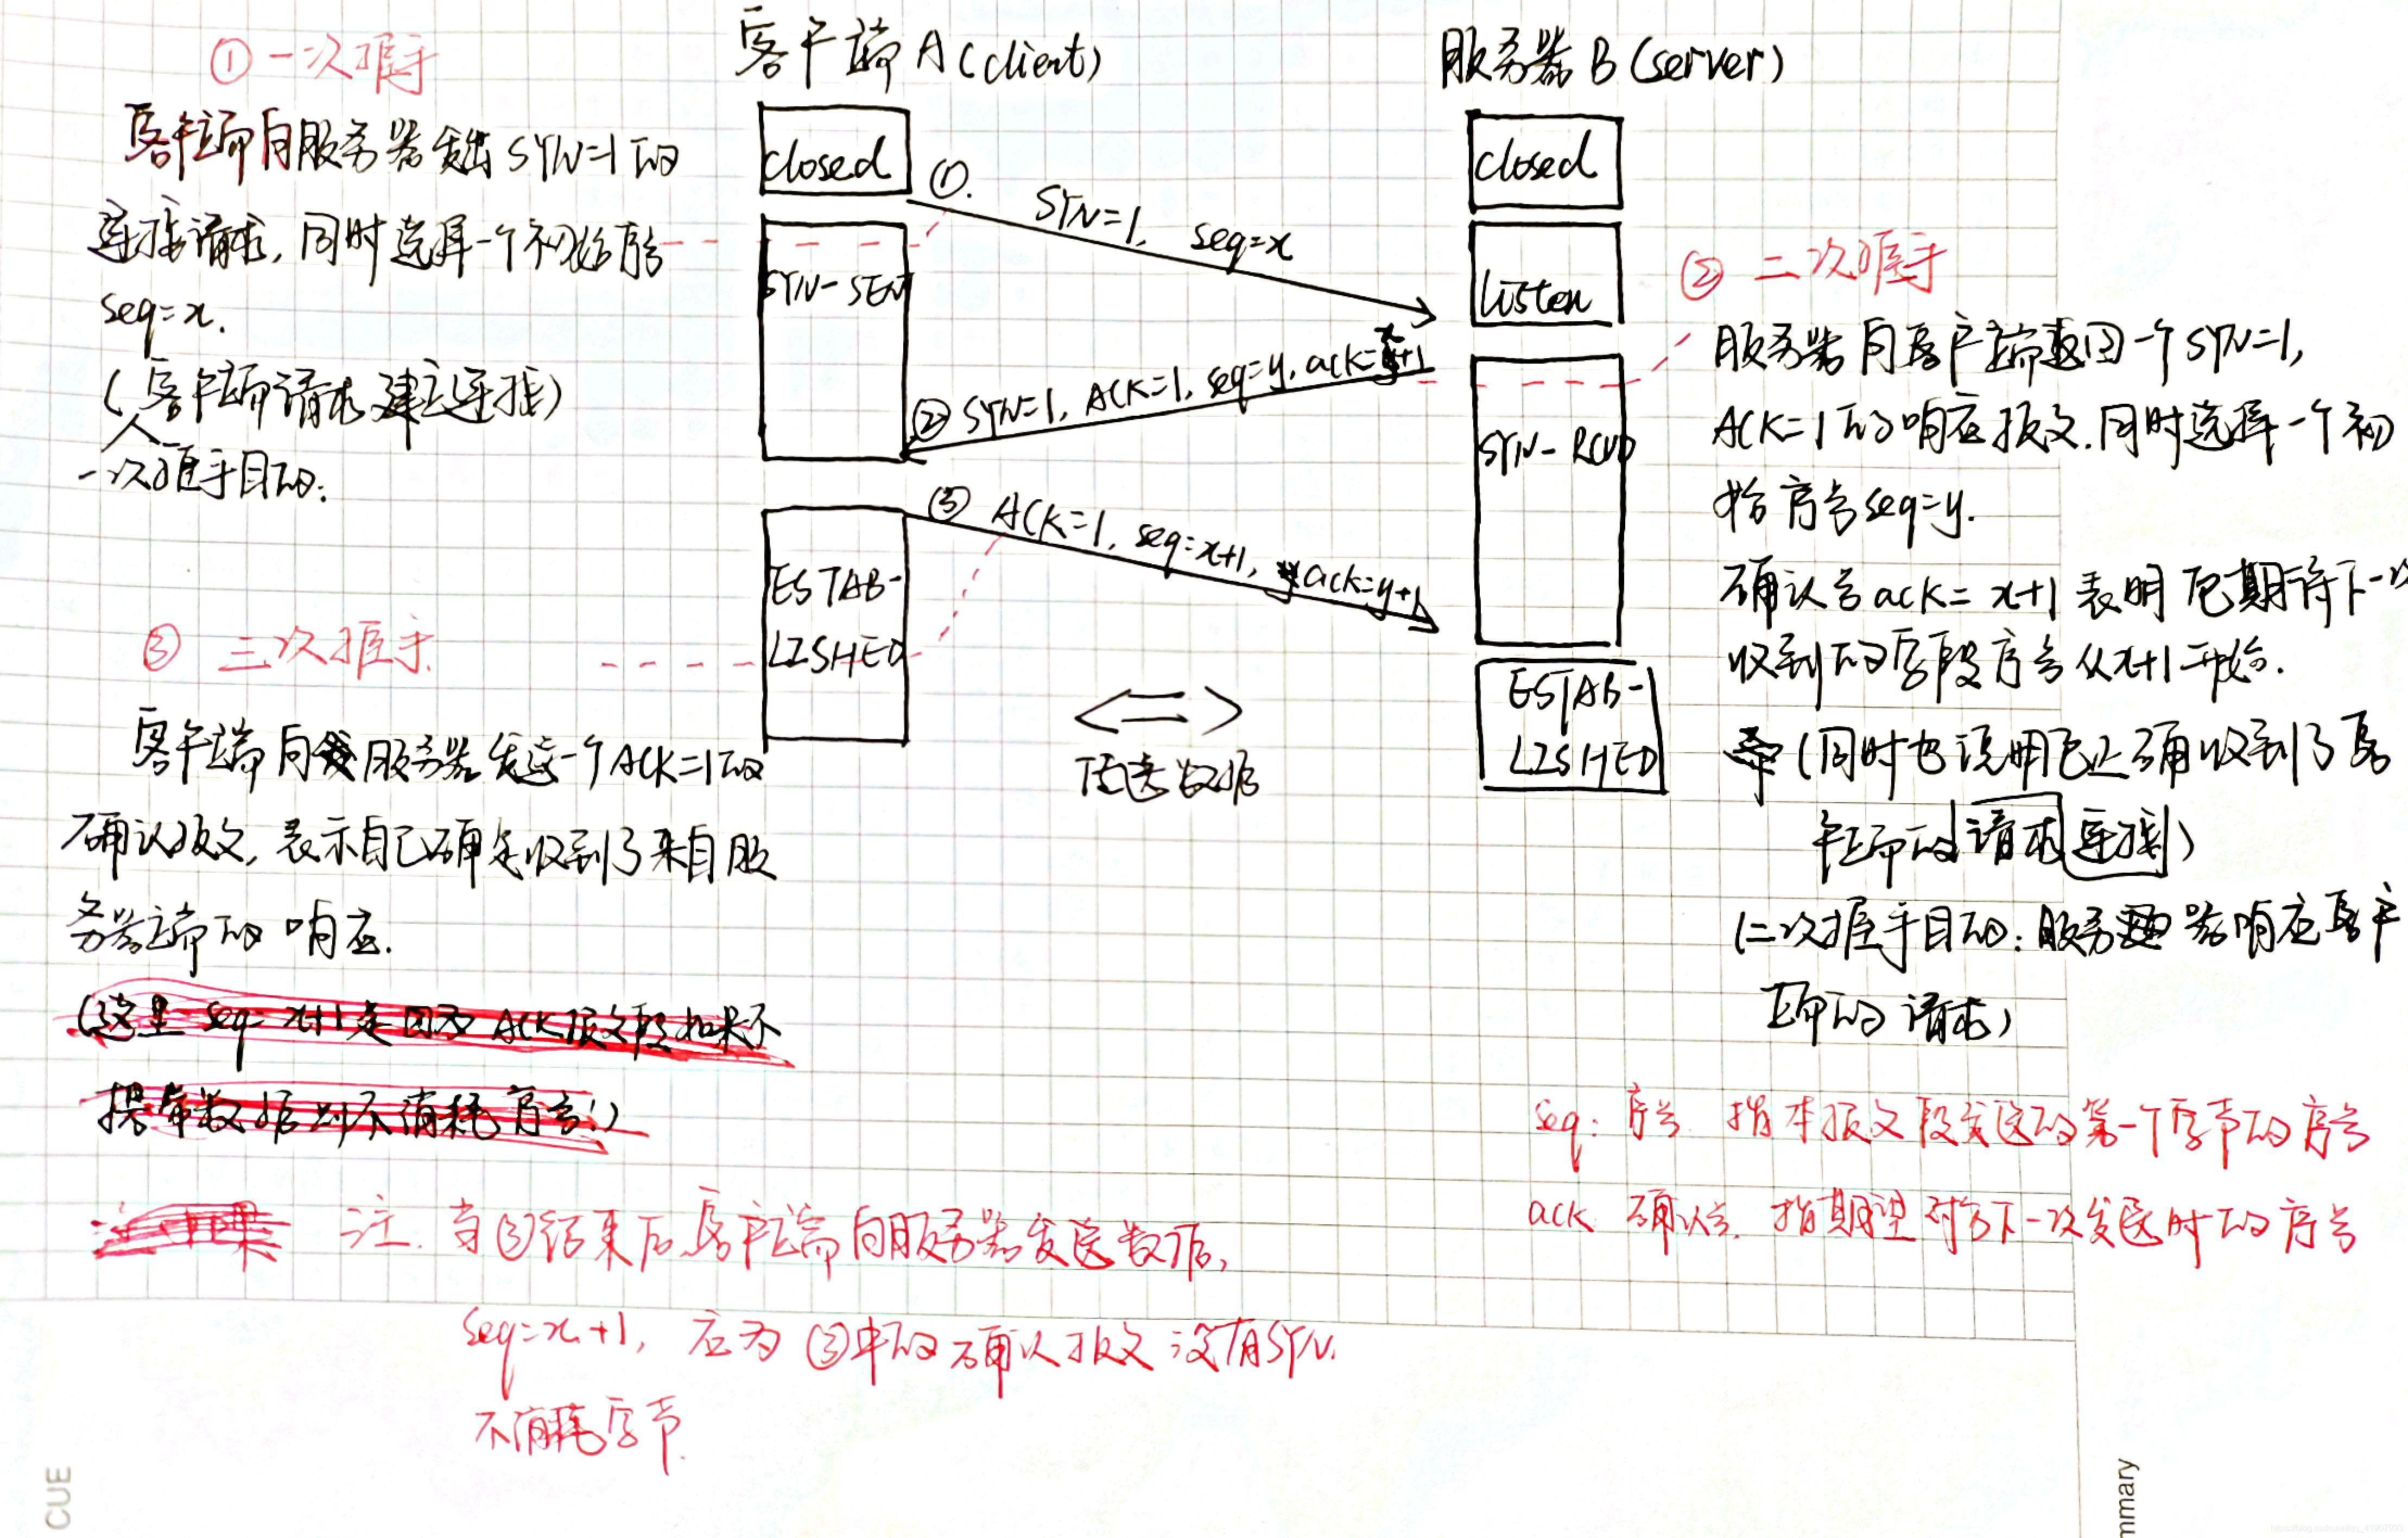 客户端A(client)
服务器B(server)
①一次握手
客户端向服务器发出SYN=1的
连接请求,同时选择一个初始序号
seq=x.
(客户端请求建立连接)
一次握手目的:
closed
SYN-SENT
ESTAB-
LISHED
①.
SYN=1, seq=x
②SYN=1, ACK=1, seq=y, ack=x+1
③ ACK=1, seq=x+1, ack=y+1
传送数据
closed
listen
SYN-RCVD
ESTAB-
LISHED
② 二次握手
服务器向客户端返回一个SYN=1,
ACK=1的响应报文.同时选择一个初
始序号seq=y.
确认号ack=x+1表明已期待下一次
收到的字段序号从x+1开始.
(同时也说明已正确收到了客
户端的请求连接)
(二次握手目的:服务器响应客户
端的请求)
③ 三次握手.
客户端向服务器发送一个ACK=1的
确认报文,表示自己确定收到了来自服
务器端的响应.
(这里seq=x+1是因为ACK报文段如果不
携带数据则不消耗序号!)
seq: 序号. 指本报文段发送的第一个字节的序号
ack 确认号. 指期望对方下一次发送时的序号
注. 当③结束后客户端向服务器发送数据,
seq=x+1, 应为③中的确认报文没有SYN.
不消耗字节.
CUE
mmary